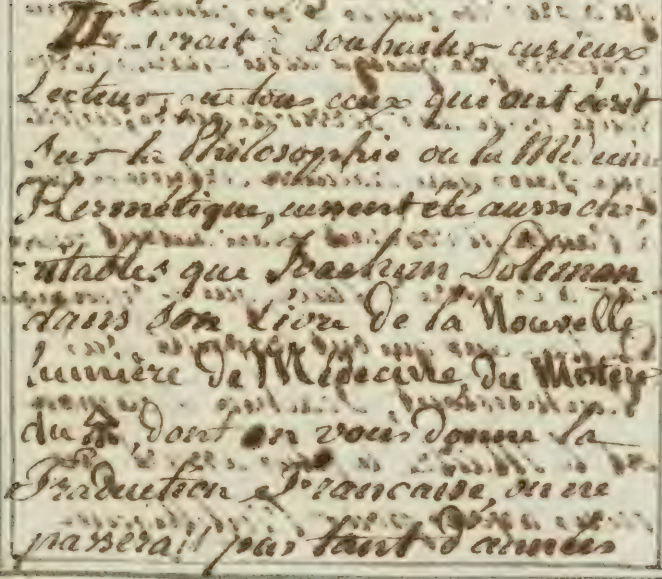 Il serait à souhaiter curieux
Lecteur, que tous ceux qui ont écrit
sur la Philosophie ou la Médecine
Hermétique, eussent été aussi cha-
ritables que Joachim Poleman
dans son Livre de la Nouvelle
lumière de Médecine, du Mistère
du 🜍, dont on vous donne la
Traduction Francaise, on ne
passerait pas tant d'années